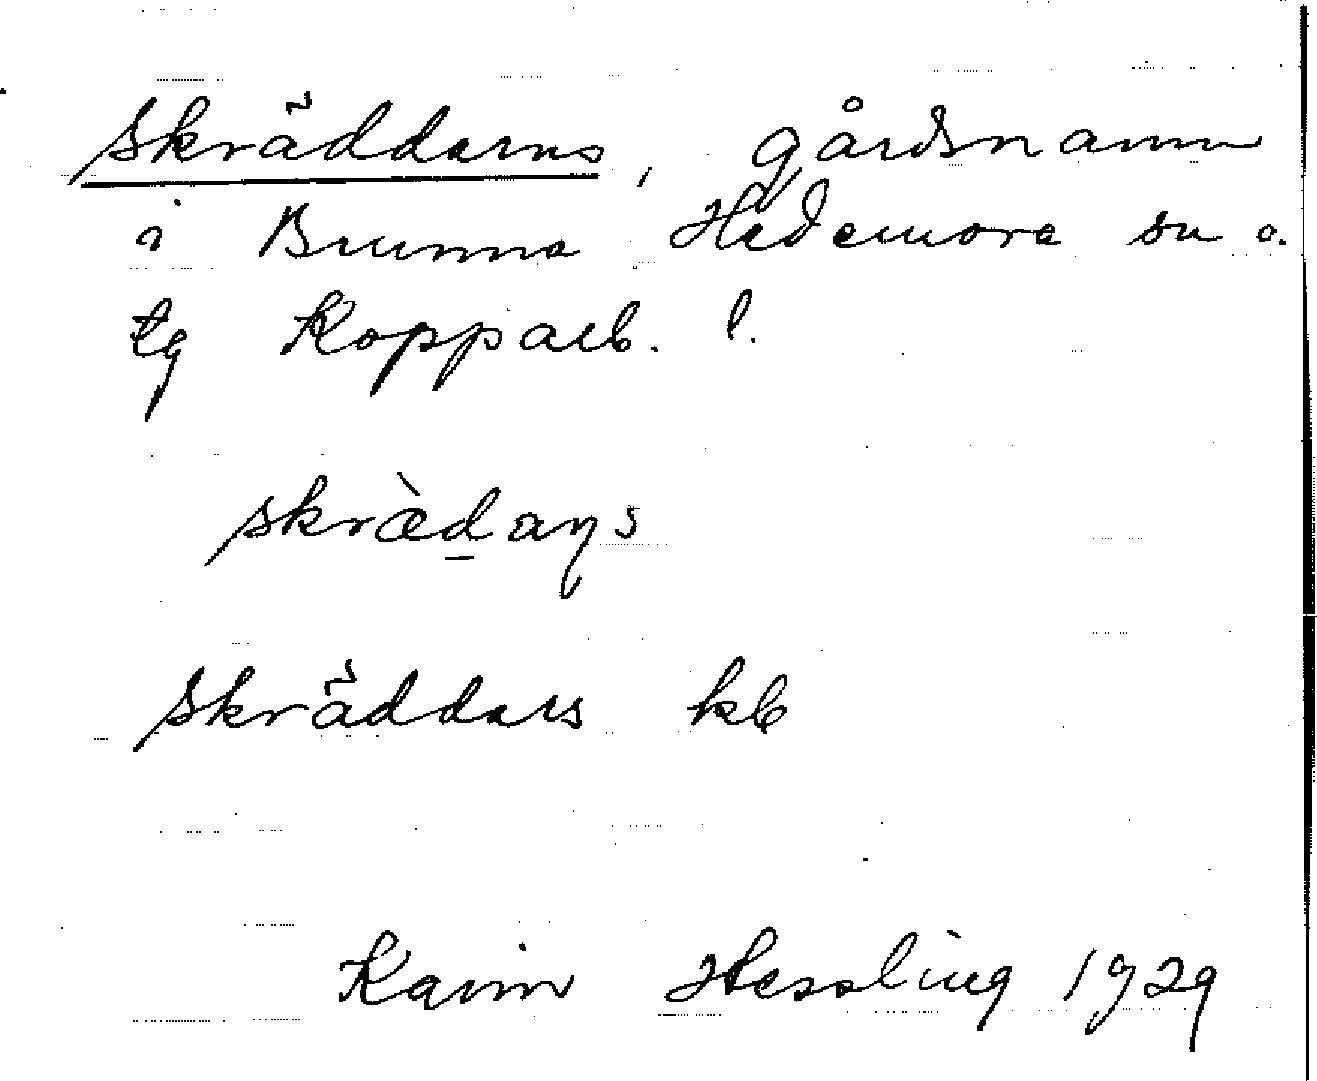 Skräddarns, gårdsnamn
i Brunna Hedemora sn o.
tg Kopparb. l.
skrædaṇs
Skräddars kb
Karin Hessling 1929